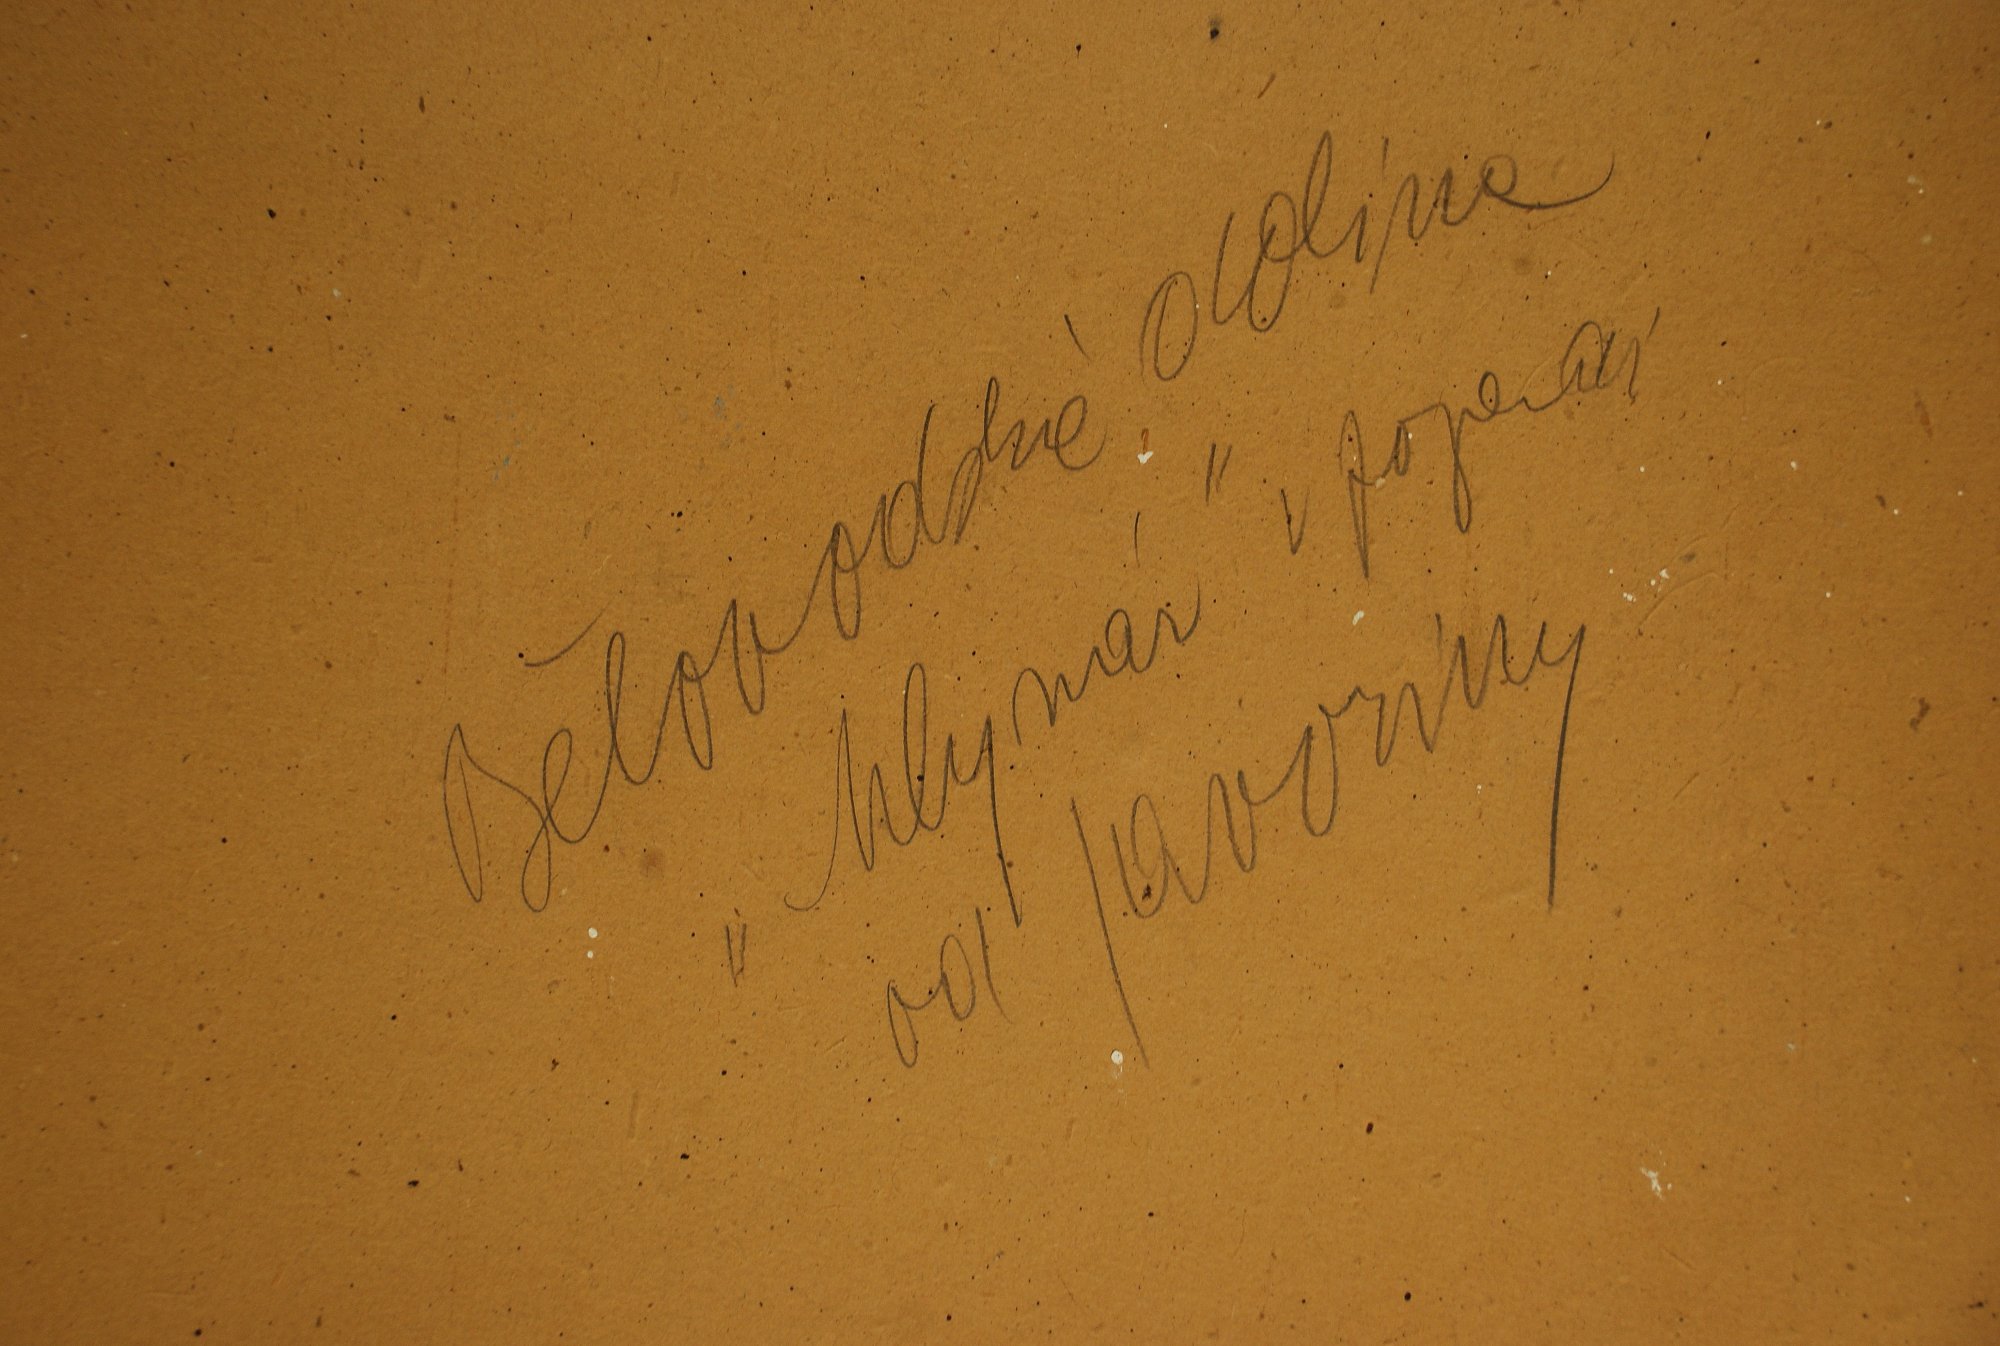 Bělovodská dolina
"Mlynár" v pozadí
od Javoriny